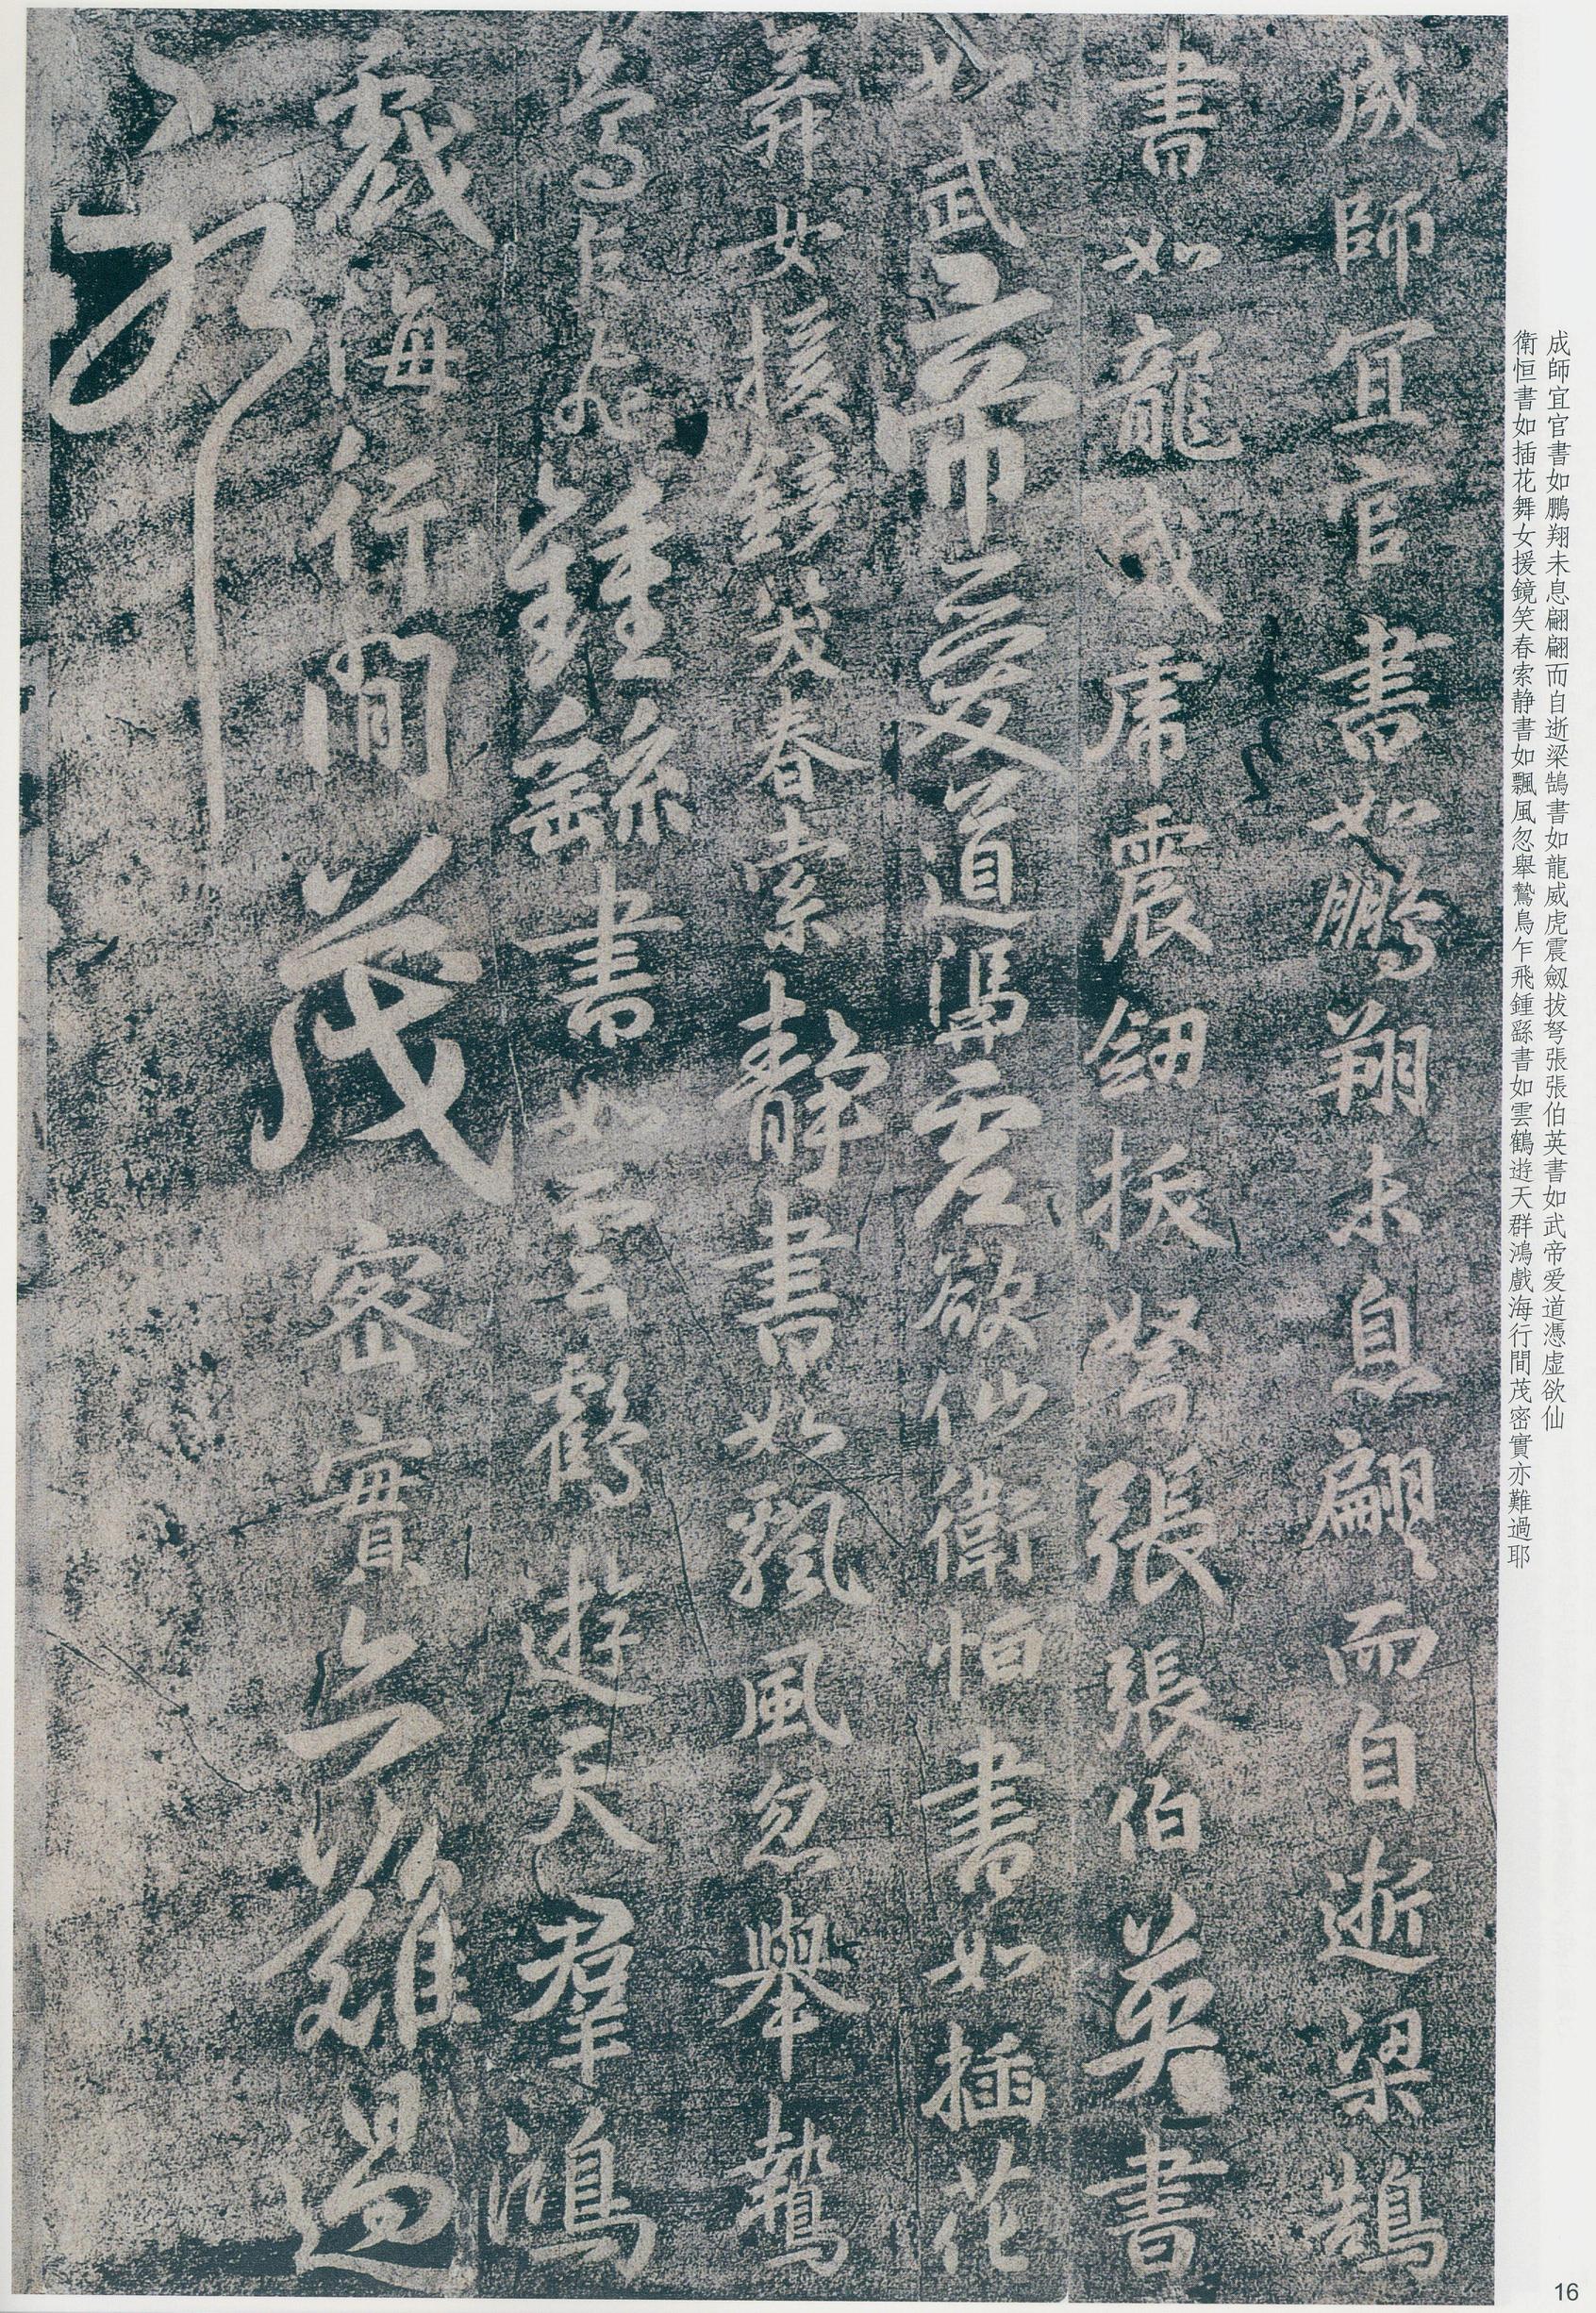 成師宜官書如鵬翔未息翩翩而自逝梁鵠書如龍威虎震劔拔弩張張伯英書如武帝爱道憑虚欲仙
衛恒書如插花舞女援鏡笑春索静書如飄風忽舉鷙鳥乍飛鍾繇書如雲鶴遊天群鴻戲海行間茂密實亦難過耶
成師宜官書如鵬翔未息翩〻而自逝梁鵠
書如龍威虎震劔拔弩張張伯英書
如武帝愛道馮虚欲仙衛恒書如插花
舞女援鏡笑春索靜書如飄風忽舉鷙
鳥乍飛鍾繇書如雲鶴遊天羣鴻
戲海行間茂密實亦難過
耶
16